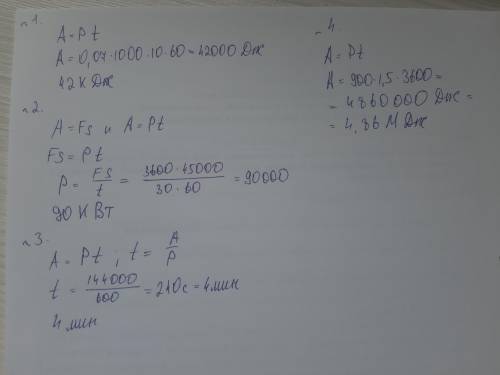 n1.
A=Pt
A=0,07·1000·10·60=42000 Дж
42 К Дж
n2.
A=Fs и A=Pt
Fs=Pt
P = Fs/t = 3600·45000/30·60 = 90000
90 К Вт
n3.
A = Pt ; t = A/P
t = 144000/600 = 240с = 4мин
4 мин
n4.
A=Pt
A=900·1,5·3600=
= 4860000 Дж =
= 4,86 М Дж